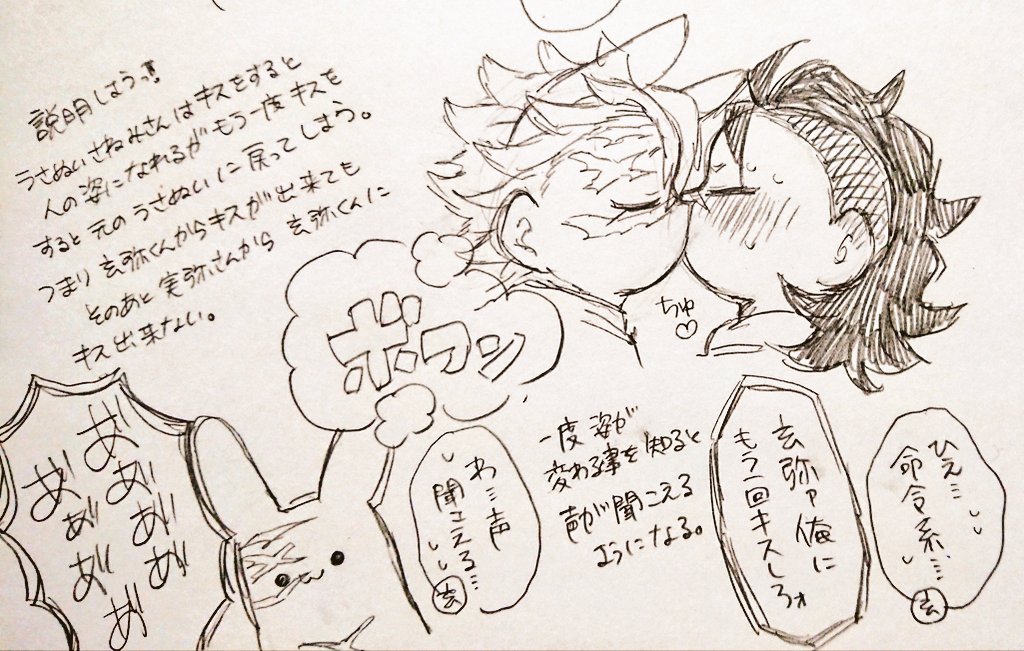 説明しようっ!
うさぬいさねみさんはキスをすると
人の姿になれるがもう一度キスを
すると元のうさぬいに戻ってしまう。
つまり玄弥くんからキスが出来ても
そのあと実弥さんから玄弥くんに
キス出来ない。
ちゅ♡
ボワン
ひえ…
命令系…
玄
玄弥ァ俺に
もう一回キスしろォ
一度姿が
変わる事を知ると
声が聞こえる
ようになる。
わ…声
聞こえる…
玄
あ゛あ゛あ゛あ゛
あ゛あ゛あ゛あ゛